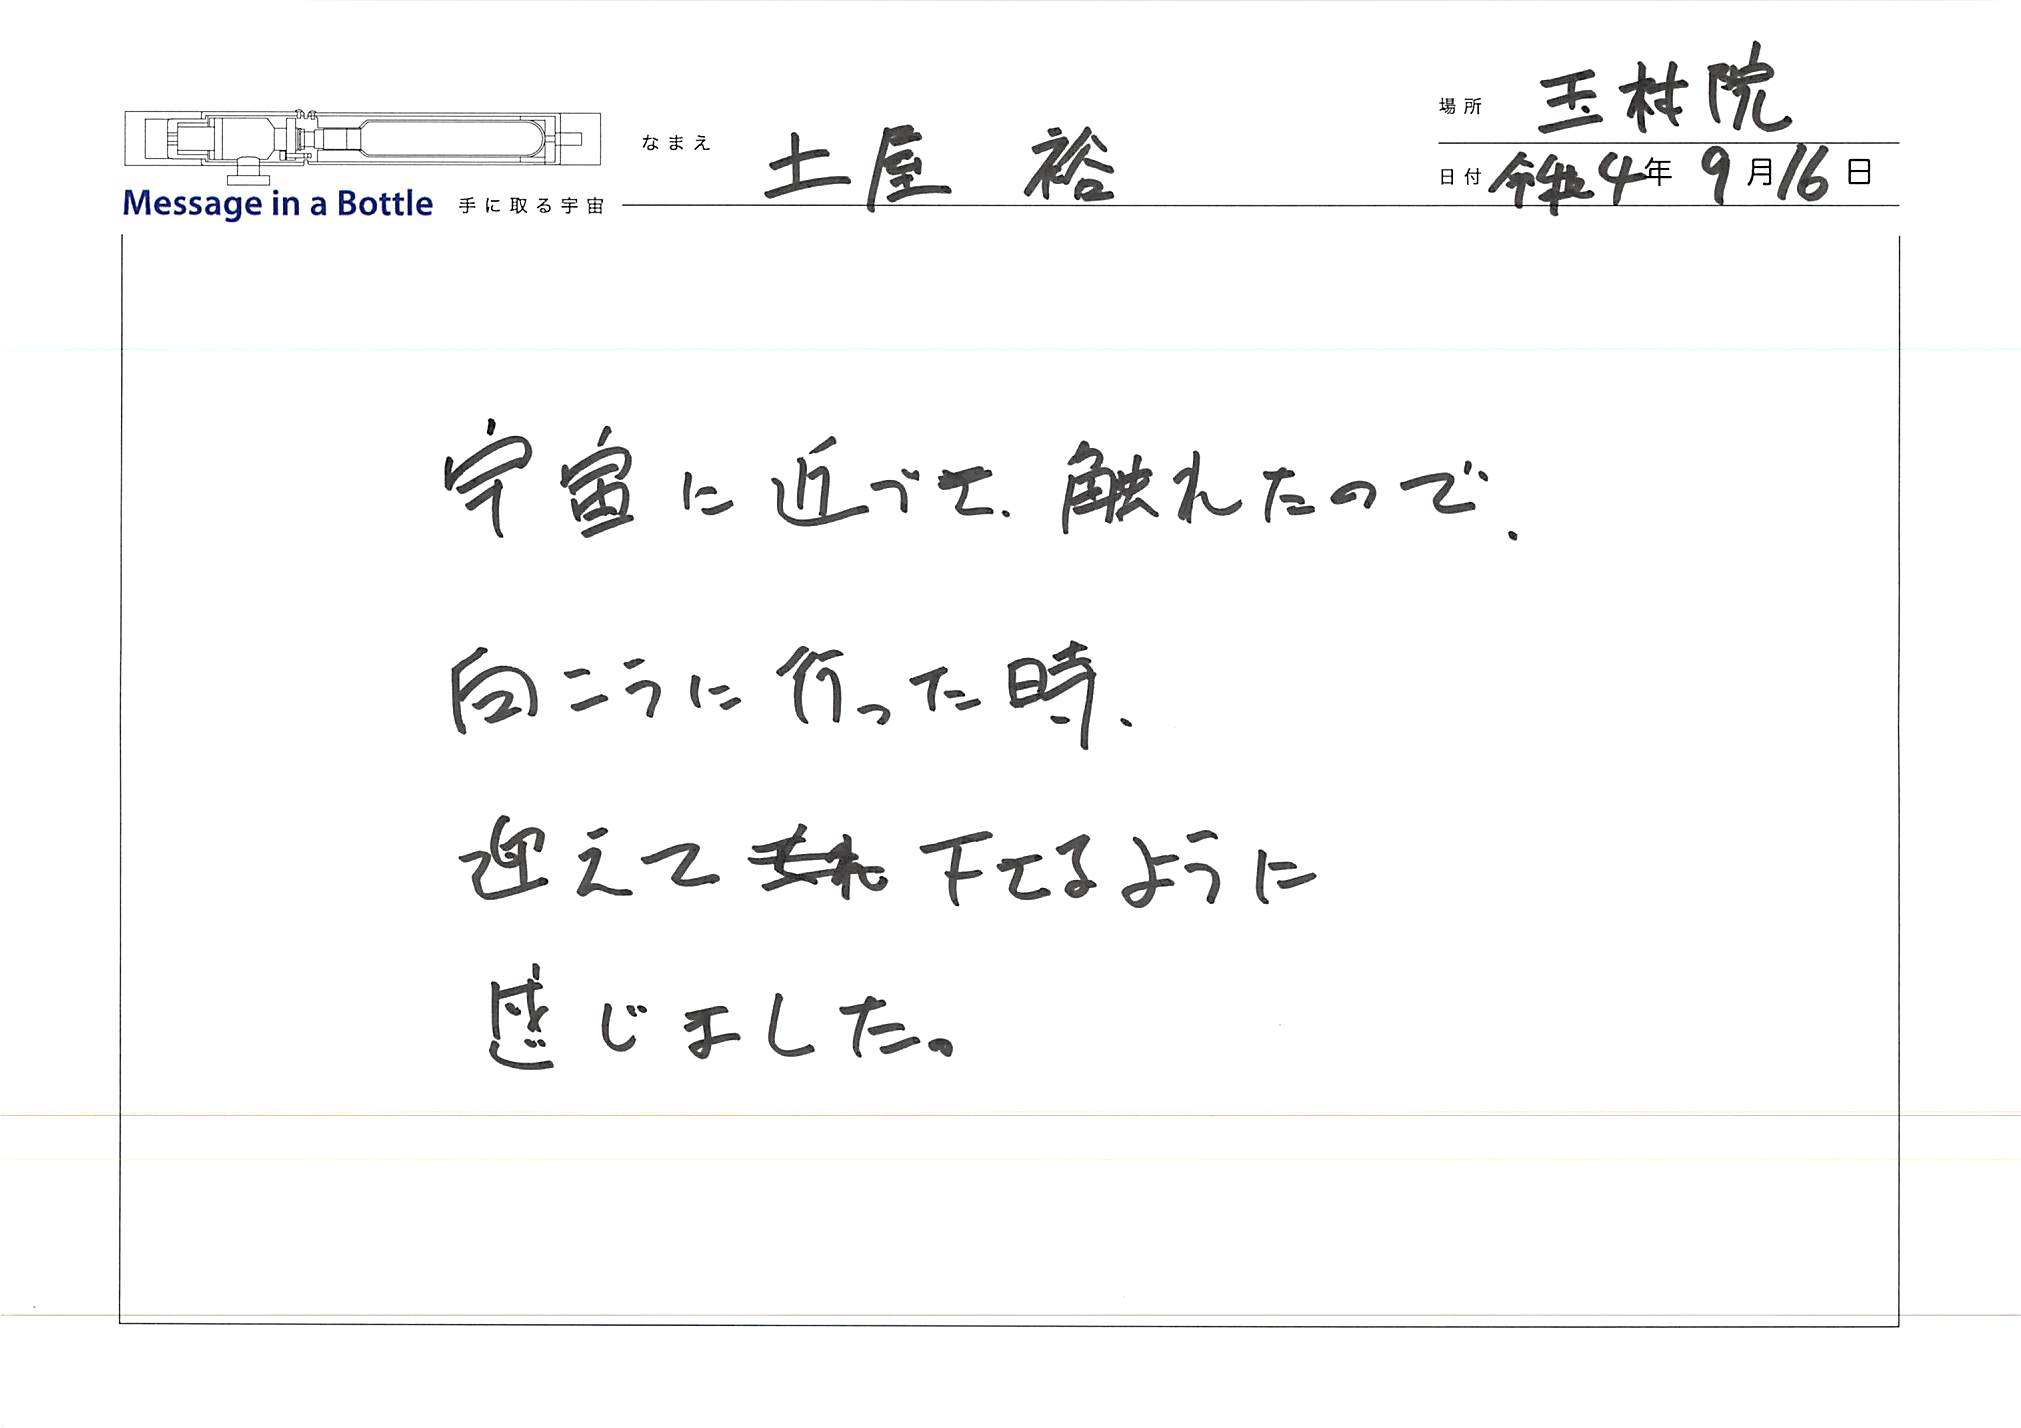 場所 玉林院
なまえ 土屋 裕
日付 令和4年 9月16日
Message in a Bottle 手に取る宇宙
宇宙に近づて、触れたので、
向こうに行った時、
迎えて 下さるように
感じました。